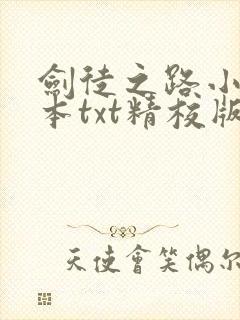 劍徒之路小
本txt精校版
天使會笑偶尔